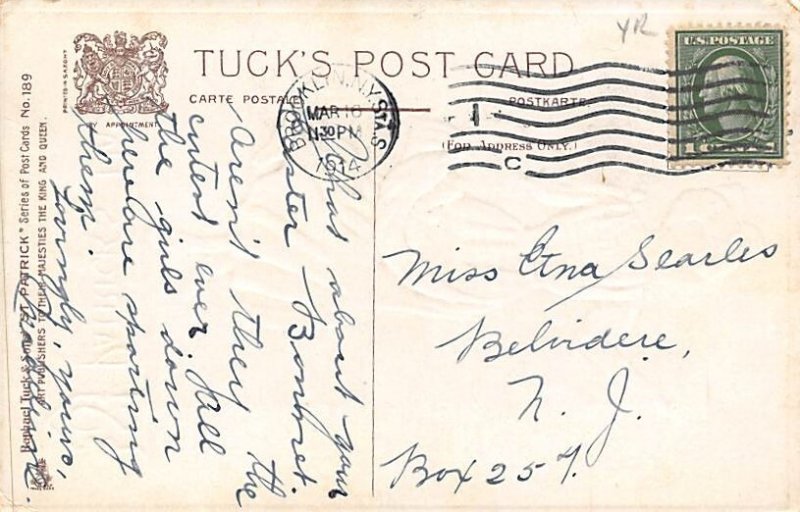 YR
TUCK'S POST CARD
CARTE POSTALE
POSTKARTE
(FOR ADDRESS ONLY.)
PRINTED IN SAXONY
BY APPOINTMENT
BROOKLYN, N.Y. STA. S
MAR 16
1914
1
C
U.S. POSTAGE
What about your
Easter Bonnet.
Aren't they the
cutest ever. All
the girls down
here are sporting
them.
Lovingly, yours,
Miss Etna Searles
Belvidere,
N. J.
Box 257.
Raphael Tuck & Sons' "ST PATRICK" Series of Post Cards No. 189
ART PUBLISHERS TO THEIR MAJESTIES THE KING AND QUEEN.